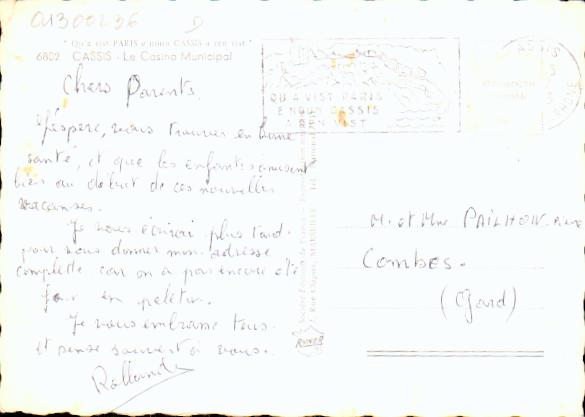 01300236
" Qu'a vist PARIS e noun CASSIS a ren vist "
6802 CASSIS - Le Casino Municipal
QU'A VIST PARIS
E NOUN CASSIS
A REN VIST
CASSIS
Chers Parents.
J'espère, vous trouver en bonne
santé, et que les enfants s'amusent
bien au début de ces nouvelles
vacances.
Je vous écrirai plus tard
pour vous donner mon adresse
complette car on a pas encore été
en peleton.
Je vous embrasse tous
et pense souvent à vous.
M. et Mme PAILHON
Combes.
(Gard)